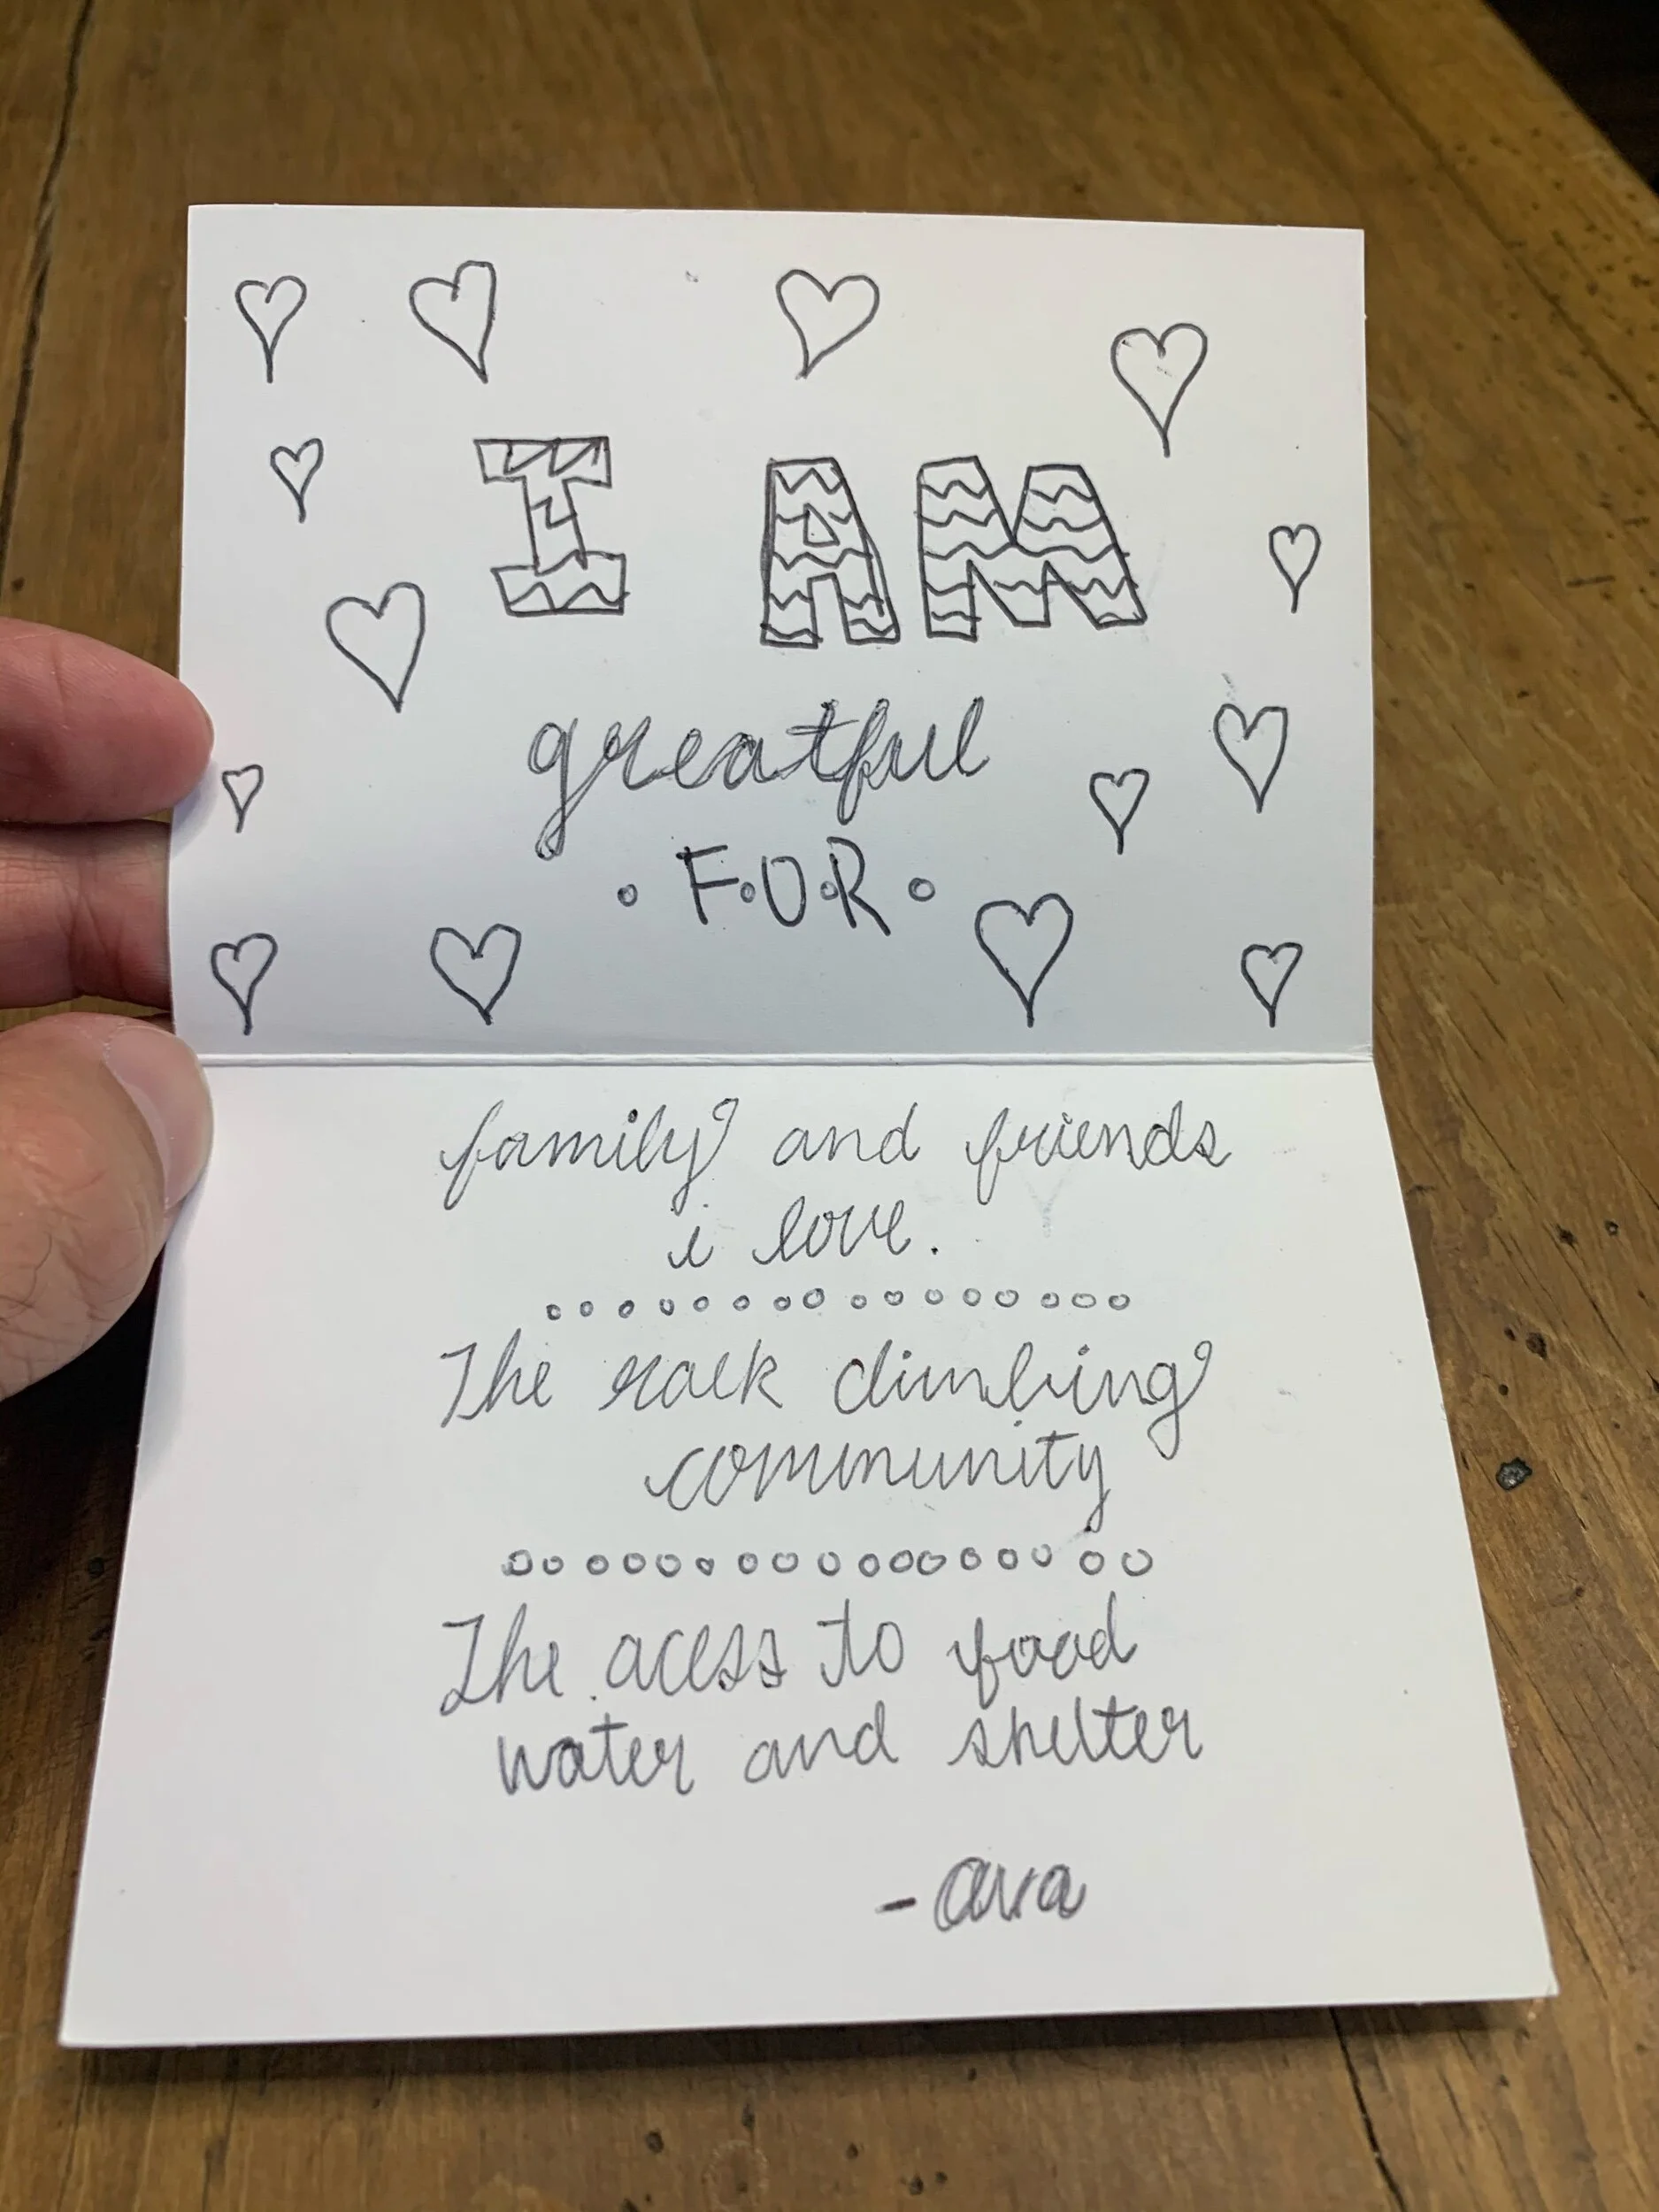 I AM
greatful
• F.O.R •
family and friends
i love.
The rock climbing
community
The acess to food
water and shelter
- ava